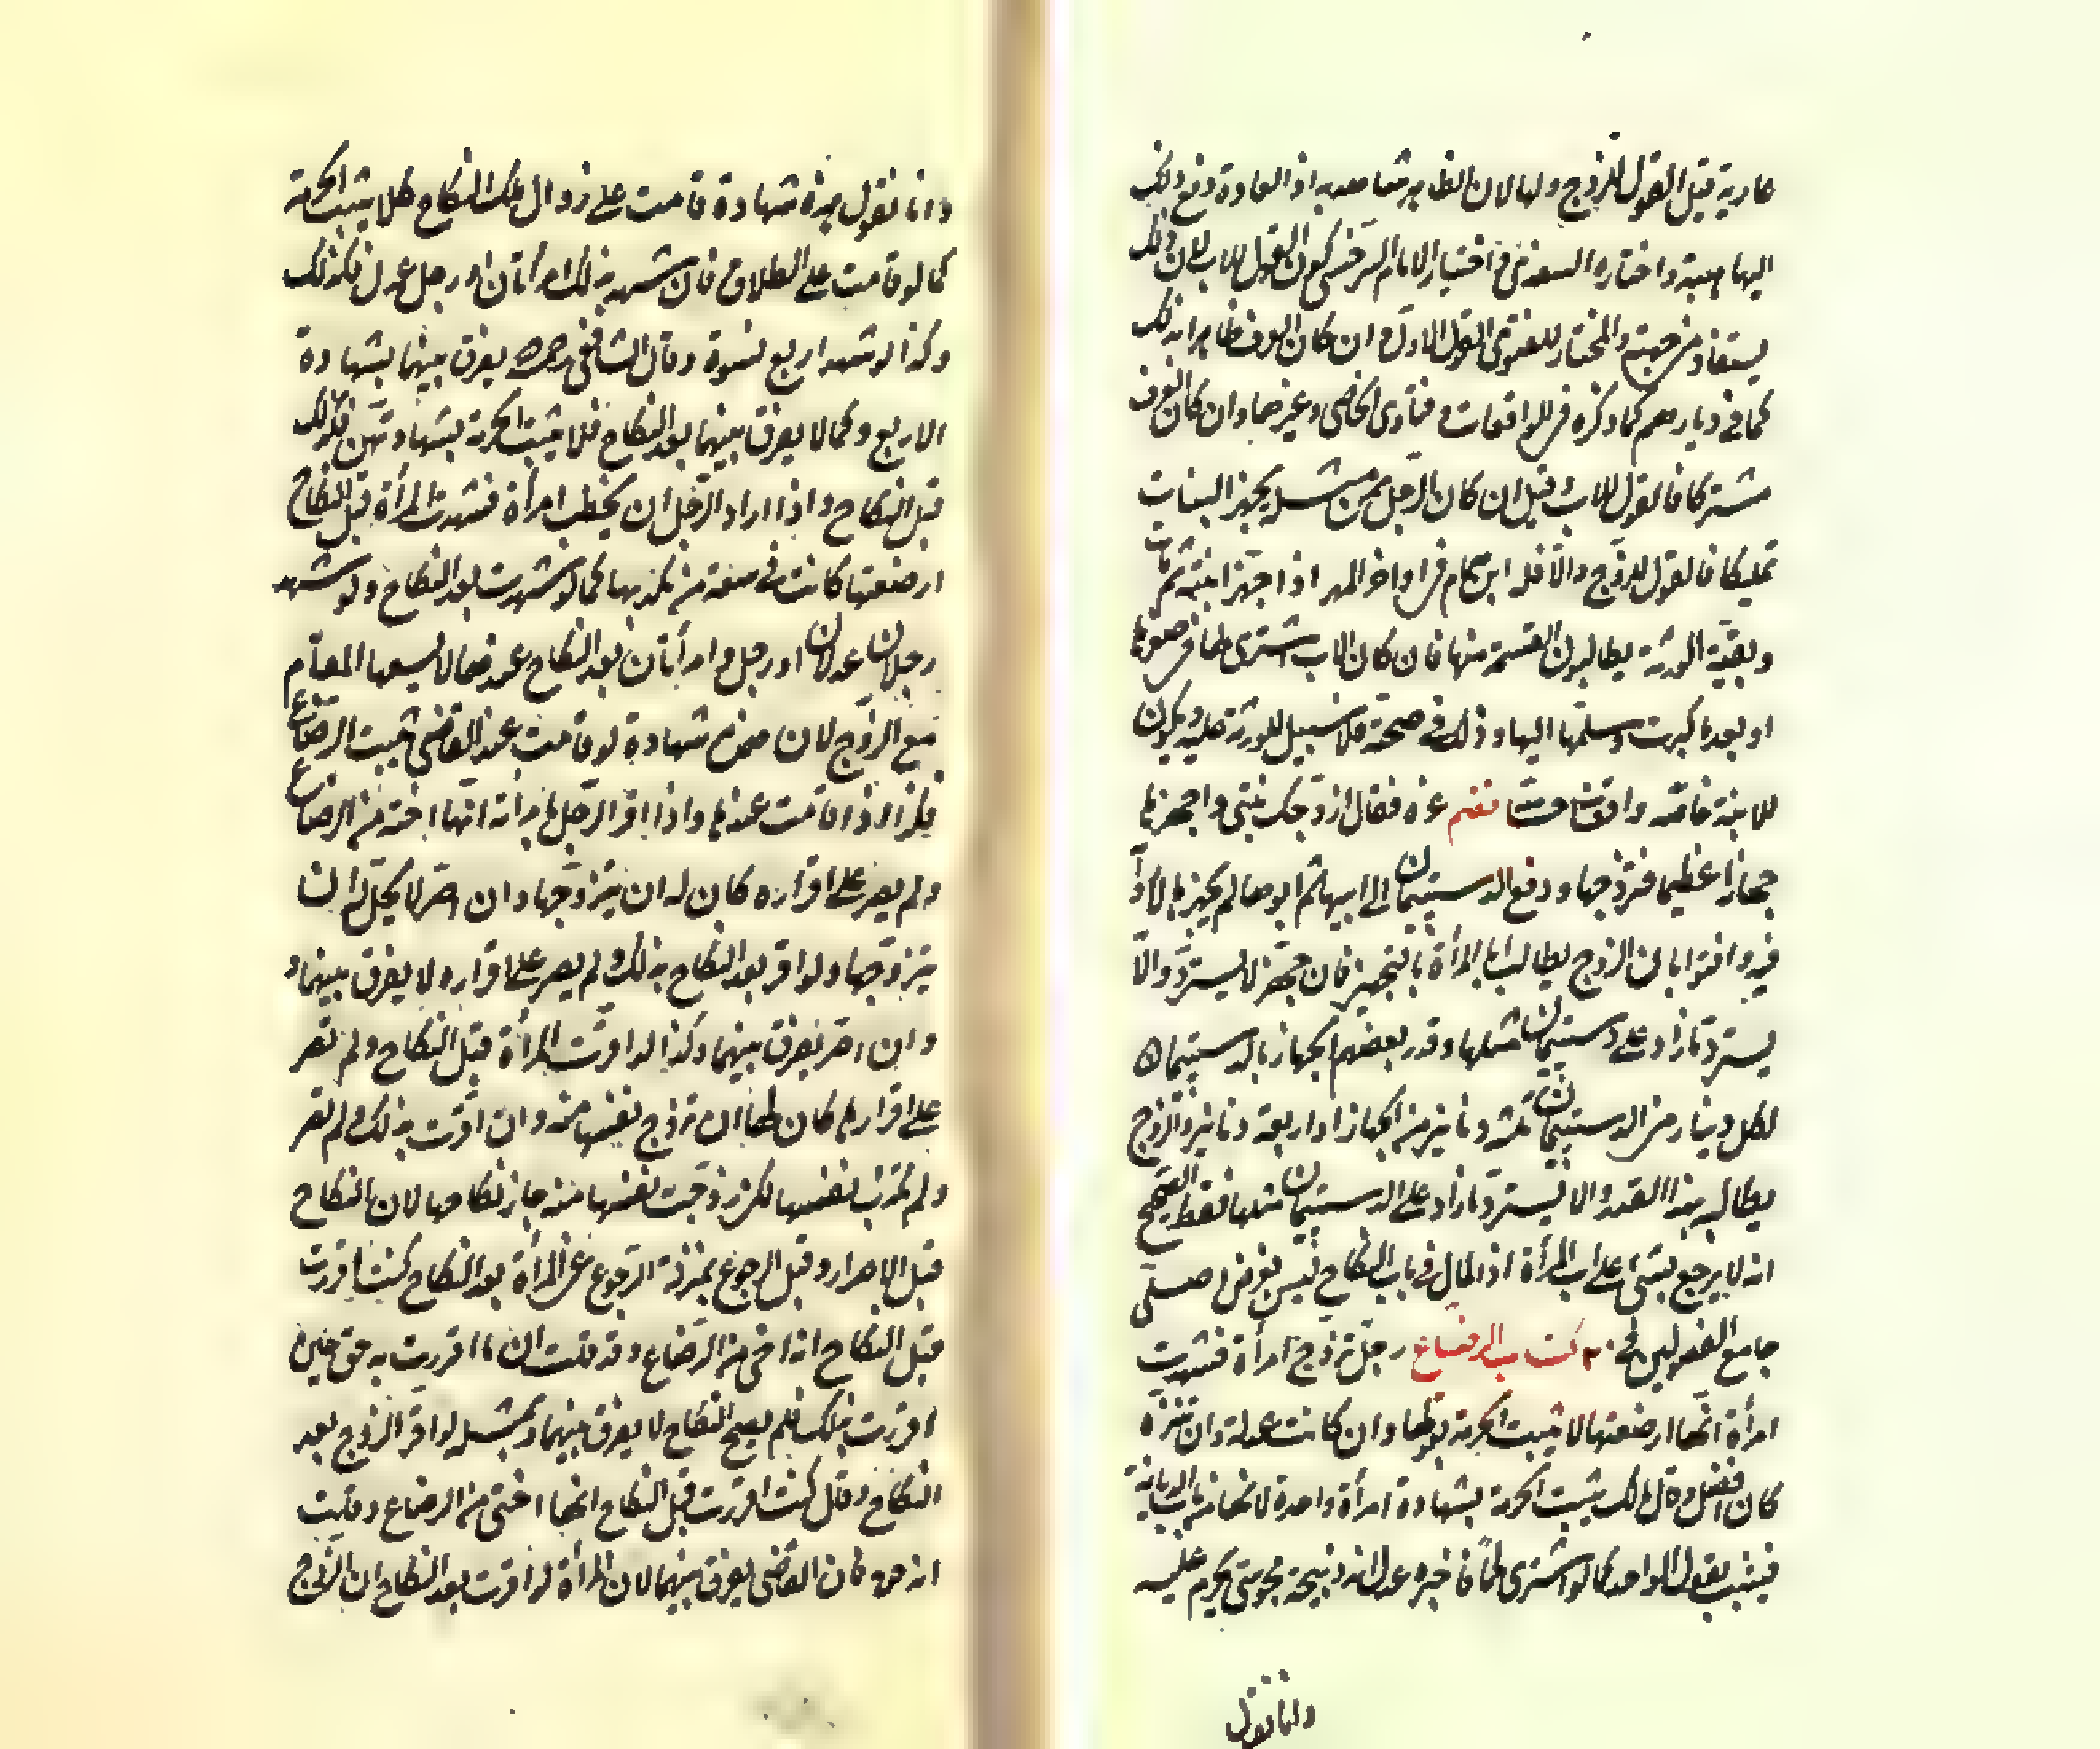 عارية قيل القول للزوج ولها لان الظاهر شاهد به اذ العادة دفع ذلك
اليها هبة واختاره السغدي واختيار الامام السرخسي كون القول للاب لان ذلك
يستفاد من جهته والمختار للفتوى القول الاول ان كان العرف ظاهرا بذلك
كما في ديارهم كما ذكره في الواقعات وفتاوى الخاصي وغيرها وان كان العرف
مشتركا فالقول للاب وقيل ان كان الرجل ممن مثله يجهز البنات
تمليكا فالقول للزوج والا فله ابن همام في اواخر المهر اذا جهز ابنته ثم مات
وبقية الورثة يطالبون القسمة منها فان كان الاب اشترى لها في صغرها
او بعد ما كبرت وسلمها اليها وذلك في صحته فلا سبيل للورثة عليه ويكون
للابنة خاصة واقعات غره فقال ازوجك بنتي واجهزها
جهازا عظيما فتزوجها ودفع الدستيمان الى ابيها ثم ابوها لم يجهزها لا
فيه وافتوا بان الزوج يطالب اب المرأة بالتجهيز فان جهز لا يسترد والا
يسترد ما زاد على دستيمان مثلها وقدر بعضهم الجهاز بالدستيمان
لكل دينار من الدستيمان ثلثة دنانير من الجهاز او اربعة دنانير والزوج
يطالبه بهذا القدر والا يسترد ما زاد على الدستيمان مثلها فقط والصحيح
انه لا يرجع بشئ على اب المرأة اذ المال في باب النكاح ليس بعوض اصلي
جامع الفصولين في ٢٠ كتاب الرضاع رجل تزوج امرأة فشهدت
امرأة انها ارضعتها لا تثبت الحرمة بقولها وان كانت عدلة وان تنزه
كان افضل وقال مالك يثبت الحرمة بشهادة امرأة واحدة لانها من باب الديانة
فيثبت بقول الواحد كما لو اشترى لحما فاخبره عدل انه ذبيحة مجوسي يحرم عليه
وانا نقول
وانا نقول هذه شهادة قامت على زوال ملك النكاح فلا يثبت الحرمة
كما لو قامت على الطلاق فان شهد بذلك امرأتان او رجل عدل فكذلك
وكذا لو شهد اربع نسوة وقال الشافعي رحمه يفرق بينهما بشهادة
الاربع وكما لا يفرق بينهما بعد النكاح فلا يثبت الحرمة بشهادتهن فكذلك
قبل النكاح واذا اراد الرجل ان يخطب امرأة فشهدت امرأة قبل النكاح
ارضعتها كانت في سعة من تكذيبها كما لو شهدت بعد النكاح ولو شهد
رجلان عدلان او رجل وامرأتان بعد النكاح عندها لا يسعها المقام
مع الزوج لان هذه شهادة لو قامت عند القاضي يثبت الرضاع
فكذا اذا قامت عندها واذا اقر الرجل بامرأة انها اخته من الرضاع
ولم يصر على اقراره كان له ان يتزوجها وان اصر لا يحل له ان
يتزوجها ولو اقر بعد النكاح بذلك ولم يصر على اقراره لا يفرق بينهما و
وان اصر يفرق بينهما وكذا لو اقرت المرأة قبل النكاح ولم تصر
على اقرارها كان لها ان تزوج نفسها منه وان اقرت بذلك ولم تصر
ولم تكذب نفسها لكن زوجت نفسها منه جاز نكاحها لان النكاح
قبل الاصرار وقبل الرجوع بمنزلة الرجوع عن المرأة بعد النكاح كنت اقررت
قبل النكاح انه اخي من الرضاع وقد قلت ان ما اقررت به حق حين
اقررت بذلك فلم يصح النكاح لا يفرق بينهما وبمثله لو اقر الزوج بعد
النكاح وقال كنت اقررت قبل النكاح انها اختي من الرضاع وقلت
انه حق فان القاضي يفرق بينهما لان المرأة لو اقرت بعد النكاح ان الزوج